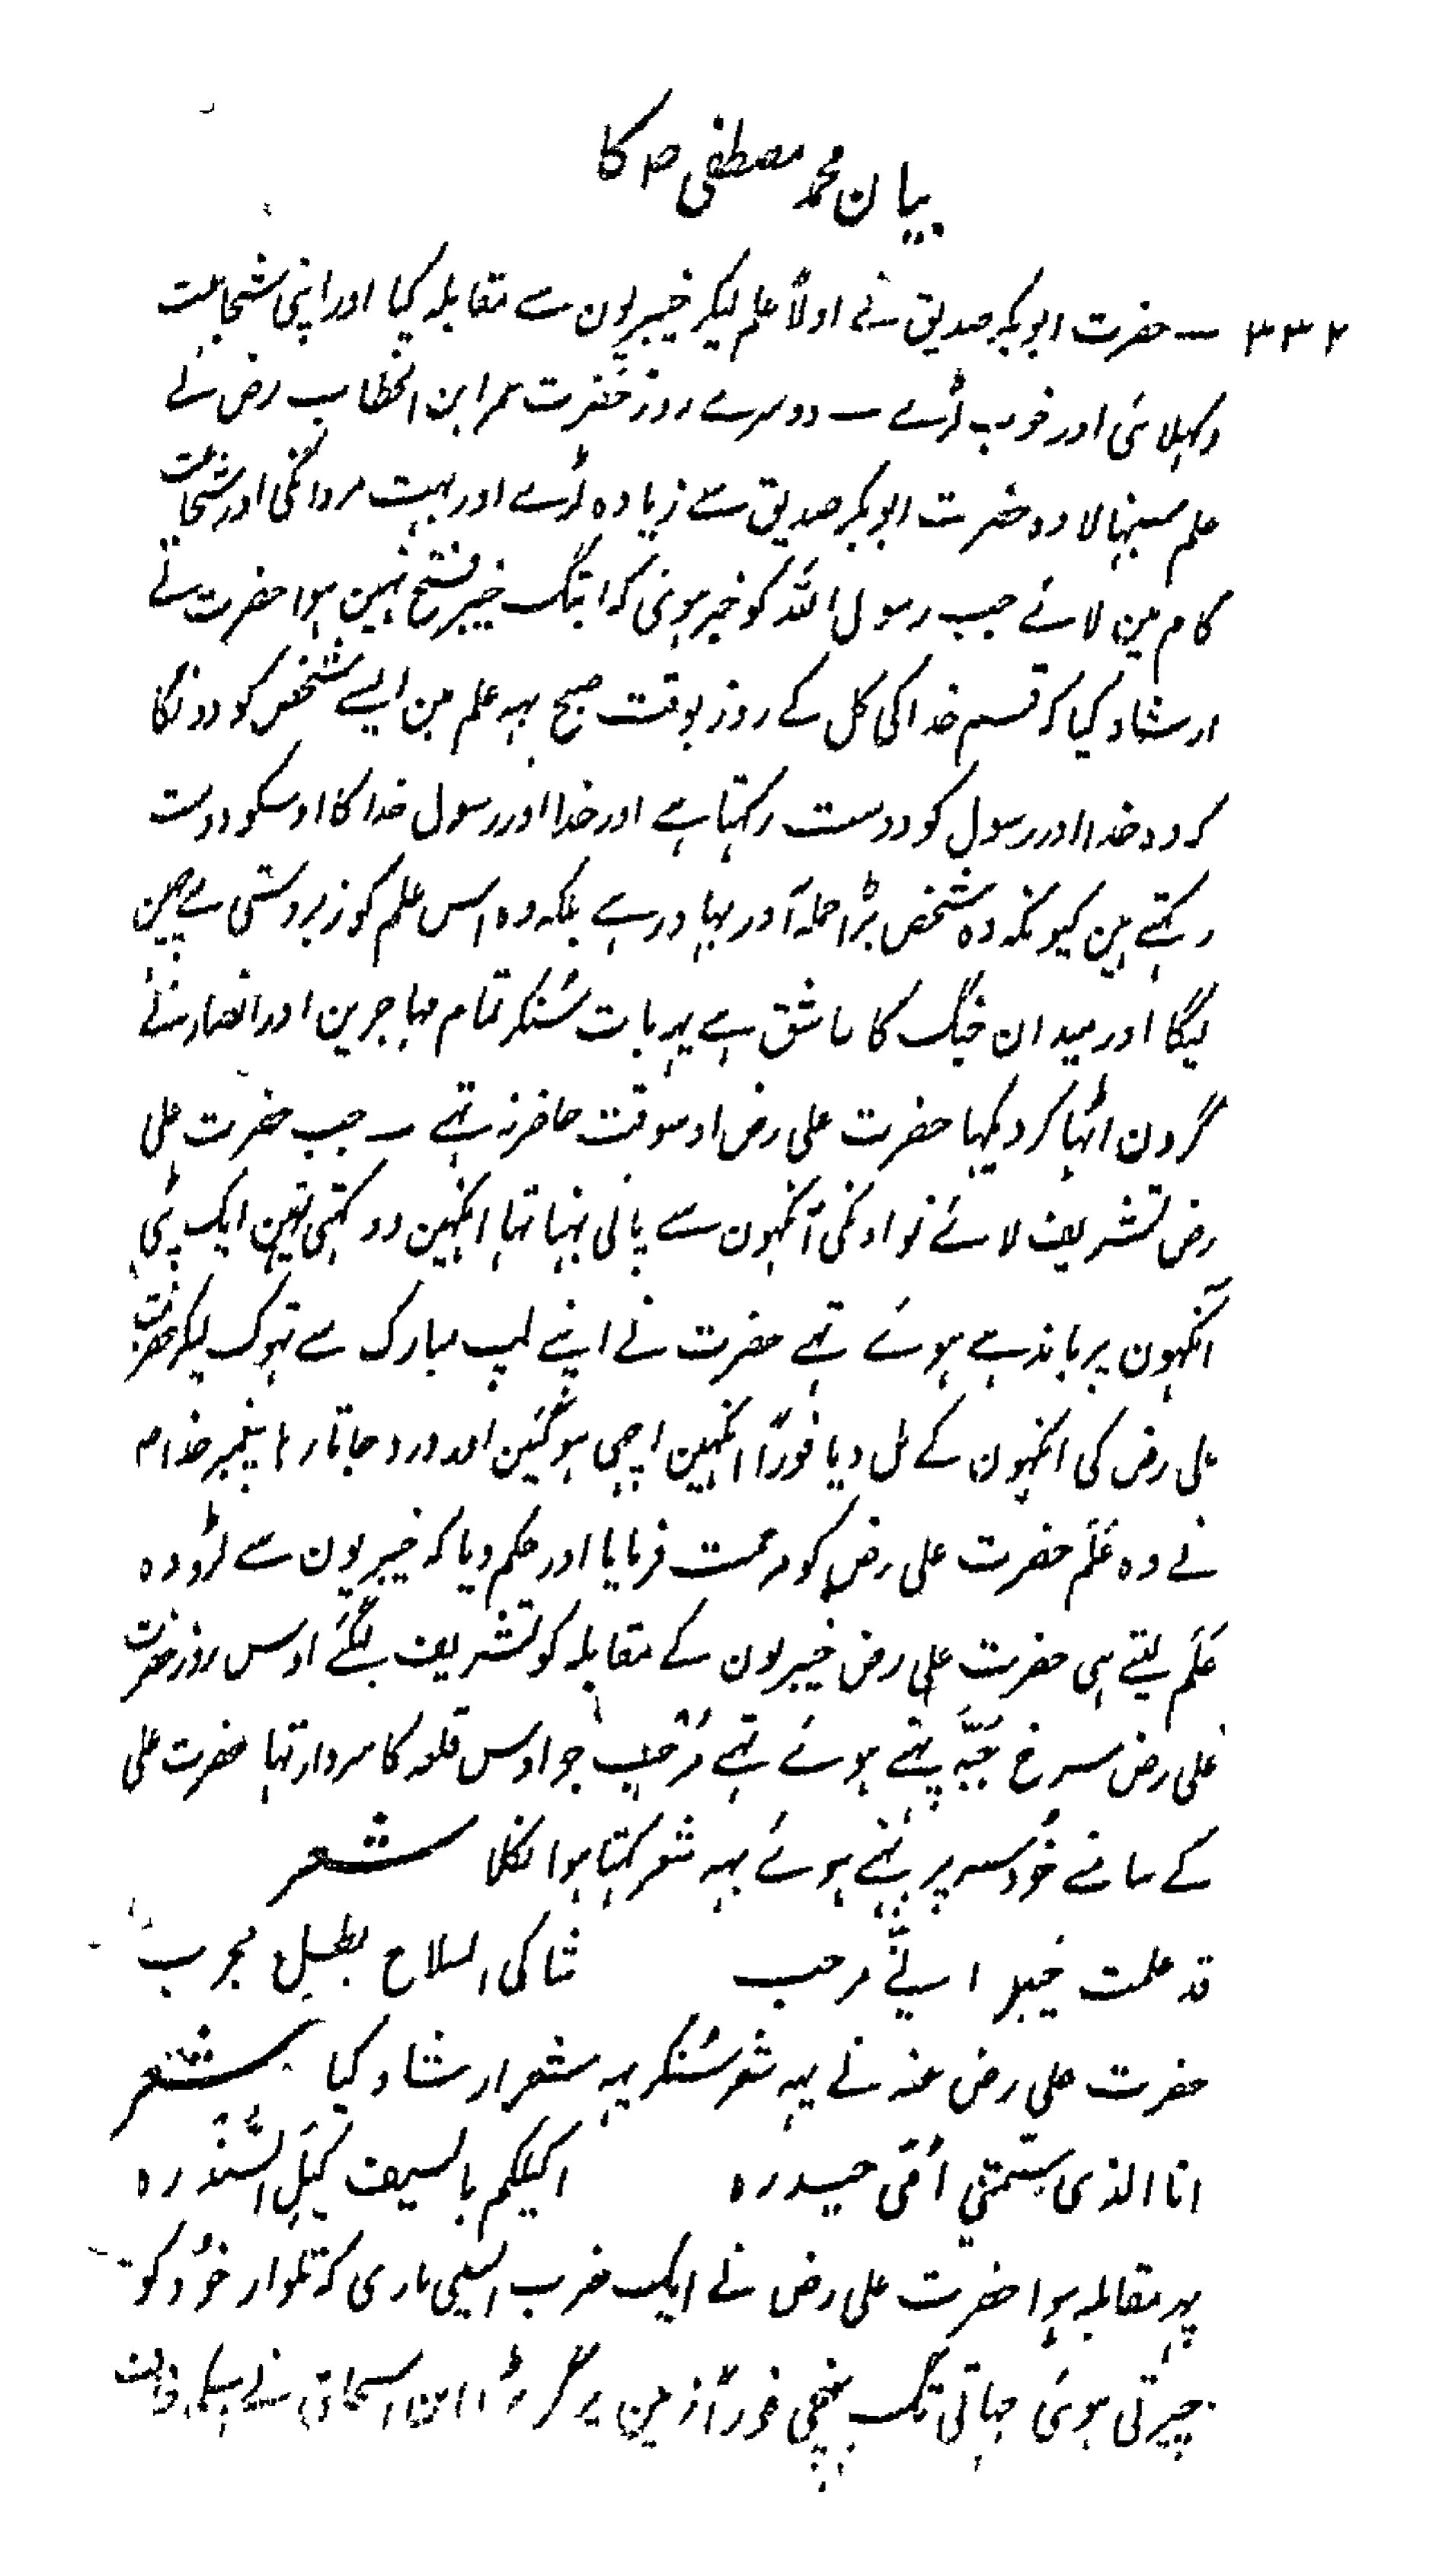 بیان محمد مصطفی ص کا
۳۳۲ — حضرت ابوبکر صدیق نے اولاً علم لیکر خیبریون سے مقابلہ کیا اور اپنی شجاعت
دکہلائی اور خوب لڑے — دوسرے روز حضرت عمر ابن الخطاب رض نے
علم سنبہالا وہ حضرت ابوبکر صدیق سے زیادہ لڑے اور بہت مردانگی اور شجاعت
کام مین لائے جب رسول اللہ کو خبر ہوئی کہ ابتک خیبر فتح نہین ہوا حضرت نے
ارشاد کیا کہ قسم خدا کی کل کے روز بوقت صبح یہہ علم مین ایسے شخص کو دونگا
کہ وہ خدا اور رسول کو دوست رکہتا ہے اور خدا اور رسول خدا کا اوسکو دوست
رکہتے ہین کیونکہ وہ شخص بڑا حملہ آور بہادر ہے بلکہ وہ اس علم کو زبردستی سے چہین
لیگا اور میدان جنگ کا عاشق ہے یہہ بات سُنکر تمام مہاجرین اور انصار نے
گردن اٹہا کر دیکہا حضرت علی رض اوسوقت حاضر نہ تہے — جب حضرت علی
رض تشریف لائے تو اونکی آنکہون سے پانی بہتا تہا انکہین دوکہتی تہین ایک پٹی
آنکہون پر باندہے ہوئے تہے حضرت نے اپنے لب مبارک سے تہوک لیکر حضرت
علی رض کی انکہون کے مل دیا فوراً انکہین اچہی ہوگئین اور درد جاتا رہا پیغمبر خدا م
نے وہ عَلَم حضرت علی رض کو مرحمت فرمایا اور حکم دیا کہ خیبریون سے لڑو وہ
عَلَم لیتے ہی حضرت علی رض خیبریون کے مقابلہ کو تشریف لیگئے اوس روز حضرت
علی رض سرخ جُبّہ پہنے ہوئے تہے مَرْحب جو اوس قلعہ کا سردار تہا حضرت علی
کے سامنے خُود سر پر پہنے ہوئے یہہ شعر کہتا ہوا نکلا شعر
قد علمت خیبر انیّ مرحب شاکی السلاح بطل مجرب
حضرت علی رض عنہ نے یہہ شعر سُنکر یہہ شعر ارشاد کیا شعر
انا الذی سمتنی اُمّی حیدرہ اکیلکم بالسیف کَیل السَّندَرہ
پہر مقابلہ ہوا حضرت علی رض نے ایک ضرب ایسی ماری کہ تلوار خُود کو
چیرتی ہوئی چہاتی تک پہنچی فوراً زمین پر گر پڑا ابن اسحاق نے